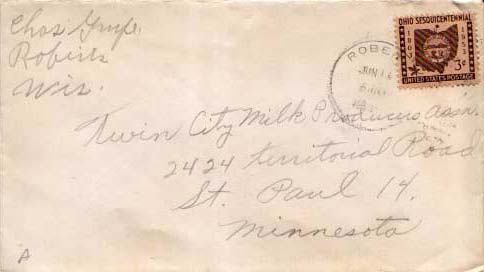 Chas
Roberts
Wis.
OHIO SESQUICENTENNIAL
1803
1953
3¢
UNITED STATES POSTAGE
ROBE
JUN
Twin City Milk Producers Assn.
2424 Territorial Road
St. Paul 14,
Minnesota
A